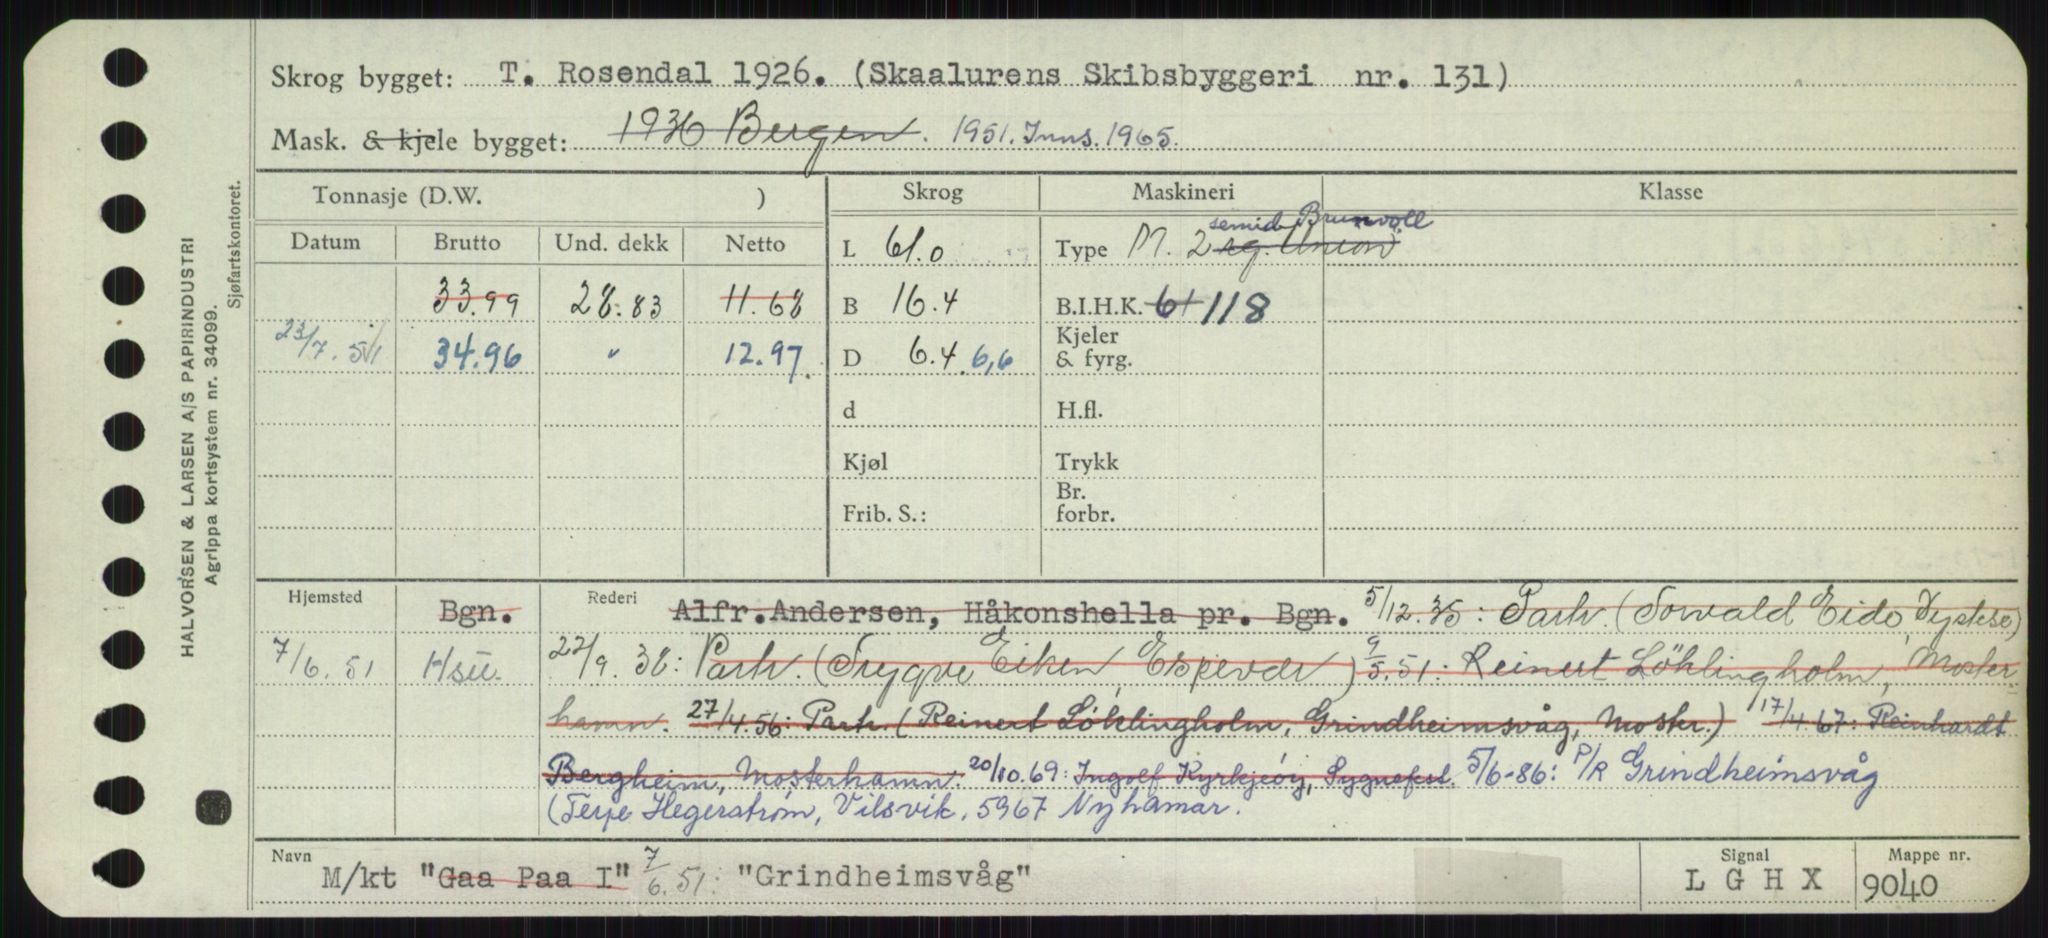 Skrog bygget: T. Rosendal 1926. (Skaalurens Skibsbyggeri nr. 131)
Mask. & kjele bygget: 1936 Bergen. 1951. Inns. 1965.
Tonnasje (D.W. ) Skrog Maskineri Klasse
Datum Brutto Und. dekk Netto
L 61.0 Type M. 2 sg. Union semid. Brunvoll
33.99 28.83 11.68 B 16.4 B.I.H.K. 61 118
23/7.51 34.96 " 12.97 D 6.4 6,6 Kjeler & fyrg.
d H.fl.
Kjøl Trykk
Frib. S.: Br. forbr.
Hjemsted Bgn. Rederi Alfr.Andersen, Håkonshella pr. Bgn. 5/12.35: Partr. (Torvald Eide, Dystese)
7/6.51 Hsu. 22/9.38: Partr. (Trygve Eiken, Espevær) 9/5.51: Reinert Løklingholm, Moster-
hamn. 27/4.56: Partr. (Reinert Løklingholm, Grindheimsvåg, Mostr.) 17/4.67: Reinhardt
Bergheim, Mosterhamn. 20/10.69: Ingolf Kyrkjeøy, Sygnefest. 5/6-86: P/R Grindheimsvåg
(Terje Hegerstrøm, Vilsvik, 5967 Nyhamar.
Navn M/kt "Gaa Paa I" 7/6.51: "Grindheimsvåg" Signal L G H X Mappe nr. 9040
HALVORSEN & LARSEN A/S PAPIRINDUSTRI
Agrippa kortsystem nr. 34099.
Sjøfartskontoret.